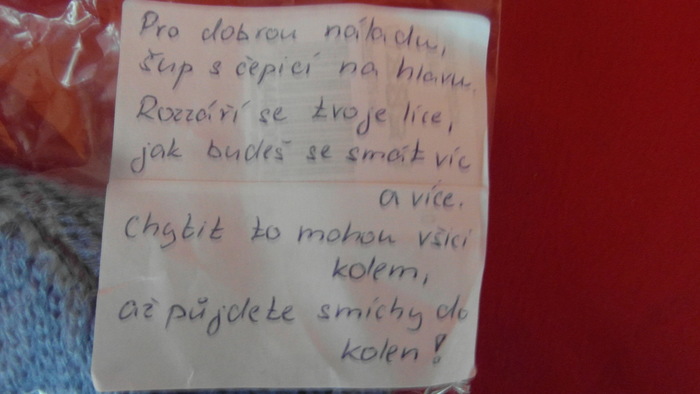 Pro dobrou náladu,
šup s čepicí na hlavu.
Rozzáří se tvoje líce,
jak budeš se smát víc
a více.
Chytit to mohou všici
kolem,
až půjdete smíchy do
kolen!